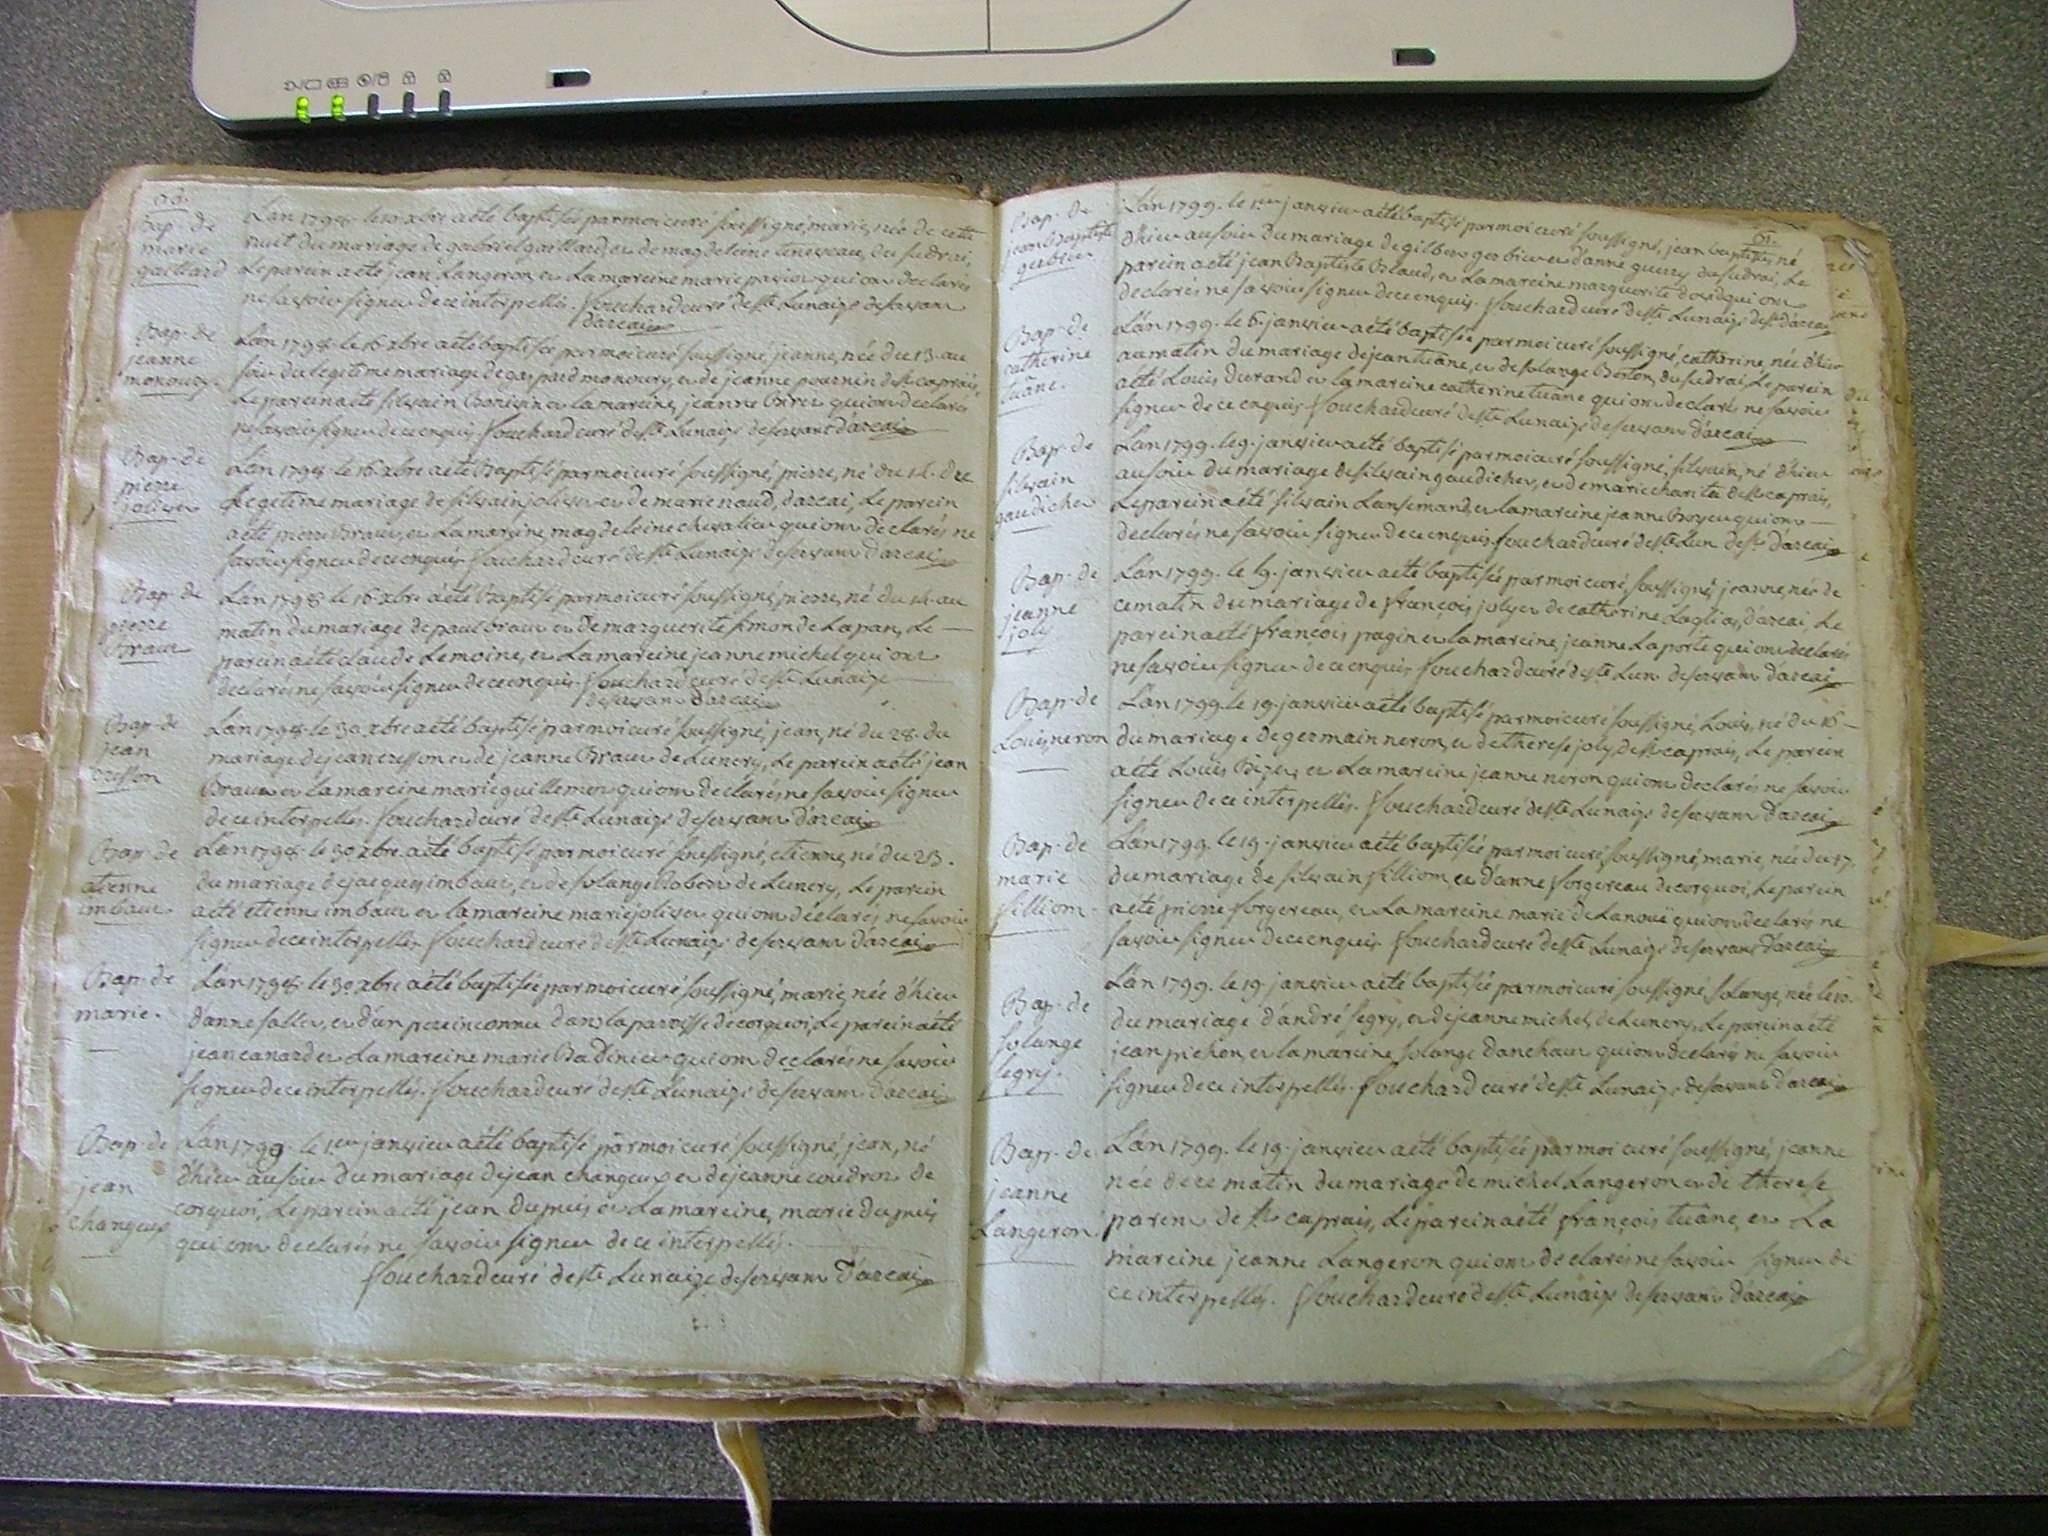 Bap. de
marie
gaillard
L'an 1798. le 10 xbre a été baptisée par moi curé soussigné, marie, née de cette
nuit du mariage de gabriel gaillard, et de magdeleine du sudrai,
Le parein a été jean Langeron, et La mareine marie qui ont declarés
ne savoir signer de ce interpellés. fouchard curé de ste Lunaize desservant
d'arcai
Bap. de
jeanne
monoury.
L'an 1798. le 16 xbre a été baptisée par moi curé soussigné, jeanne, née du 13. au
soir du legitime mariage de gaspard monoury, et de jeanne pournin de st. caprais,
Le parein a été silvain et la mareine, jeanne qui ont declarés
ne savoir signer de ce enquis. fouchard curé de ste Lunaize desservant d'arcai
Bap. de
pierre
jolivet
L'an 1798. le 16 xbre a été Baptisé par moi curé soussigné, pierre, né du 14. de
Legitime mariage de silvain jolivet et de marie naud, d'arcai, Le parein
a été pierre Braut, et La mareine magdeleine chevalier qui ont declarés ne
savoir signer de ce enquis. fouchard curé de ste Lunaize desservant d'arcai
Bap. de
pierre
Braut
L'an 1798 le 16 xbre a été Baptisé par moi curé soussigné, pierre, né du 14. au
matin du mariage de paul braut et de marguerite simon de Lapan, Le
parein a été claude Lemoine, et La mareine jeanne michel qui ont
declarés ne savoir signer de ce enquis. fouchard curé de ste Lunaize
desservant d'arcai
Bap. de
jean
cresson
L'an 1798. le 30 xbre a été baptisé par moi curé soussigné, jean, né du 28. du
mariage de jean cresson et de jeanne Braut de Lunery, Le parein a été jean
Braut et la mareine marie guillemet qui ont declarés ne savoir signer
de ce interpellés. fouchard curé de ste Lunaize desservant d'arcai
Bap. de
etienne
imbaut
L'an 1798. le 30 xbre a été baptisé par moi curé soussigné, etienne, né du 23.
du mariage de jacques imbaut, et de solange Robert de Lunery, Le parein
a été etienne imbaut et la mareine marie jolivet qui ont declarés ne savoir
signer de ce interpellés. fouchard curé de ste Lunaize desservant d'arcai
Bap. de
marie.
L'an 1798. le 30 xbre a été baptisée par moi curé soussigné, marie, née d'hier
d'anne salle, et d'un pere inconnu dans la paroisse de corquoi, Le parein a été
jean canard et La mareine marie Badinier qui ont declarés ne savoir
signer de ce interpellés. fouchard curé de ste Lunaize desservant d'arcai
Bap. de
jean
changeux
L'an 1799. le 1er janvier a été baptisé par moi curé soussigné, jean, né
d'hier au soir du mariage de jean changeux et de jeanne coudret de
corquoi, Le parein a été jean Dupuis et La mareine, marie dupuis
qui ont declarés ne savoir signer de ce interpellés.
fouchard curé de ste Lunaize desservant d'arcai
61.
Bap. de
jean Baptiste
gerbier
L'an 1799. le 1er janvier a été baptisé par moi curé soussigné, jean baptiste, né
d'hier au soir du mariage de gilbert gerbier et d'anne guerry du sudrai, Le
parein a été jean Baptiste Blaud, et La mareine marguerite qui ont
declarés ne savoir signer de ce enquis. fouchard curé de ste Lunaize dest. d'arcai
Bap. de
catherine
tuâne.
L'an 1799. le 6. janvier a été baptisée par moi curé soussigné, catherine, née d'hier
au matin du mariage de jean tuâne, et de solange Berton, du sudrai, Le parein
a été Louis Durand et la mareine catherine tuane qui ont declarés ne savoir
signer de ce enquis. fouchard curé de ste Lunaize desservant d'arcai
Bap. de
silvain
gaudichet
L'an 1799. le 9. janvier a été baptisé par moi curé soussigné, silvain, né d'hier
au soir du mariage de silvain gaudichet, et de marie de st. caprais,
Le parein a été silvain Lansemand, et la mareine jeanne Boyer qui ont
declarés ne savoir signer de ce enquis. fouchard curé de ste Lun. dest. d'arcai
Bap. de
jeanne
joly
L'an 1799. le 19. janvier a été baptisée par moi curé soussigné, jeanne, née de
ce matin du mariage de françois joly et de catherine d'arcai, Le
parein a été françois pagin et la mareine, jeanne Laporte qui ont declarés
ne savoir signer de ce enquis. fouchard curé de ste Lun. desservant d'arcai
Bap. de
Louis neron
L'an 1799. le 19. janvier a été baptisé par moi curé soussigné, Louis, né du 16
du mariage de germain neron, et de therese joly, de st. caprais, Le parein
a été Louis Bizet, et La mareine jeanne neron qui ont declarés ne savoir
signer de ce interpellés. fouchard curé de ste Lunaize desservant d'arcai
Bap. de
marie
filliom.
L'an 1799. le 19. janvier a été baptisée par moi curé soussigné, marie, née du 17.
du mariage de silvain filliom, et d'anne forgereau de corquoi, Le parein
a été pierre forgereau, et La mareine marie de Lanouë qui ont declarés ne
savoir signer de ce enquis. fouchard curé de ste Lunaize desservant d'arcai
Bap. de
solange
segry.
L'an 1799. le 19. janvier a été baptisée par moi curé soussigné, solange, née le 10.
du mariage d'andré segry, et de jeanne michel, de Lunery, Le parein a été
jean pichon, et la mareine, solange Danchaut qui ont declarés ne savoir
signer de ce interpellés. fouchard curé de ste Lunaize desservant d'arcai
Bap. de
jeanne
Langeron.
L'an 1799. le 19. janvier a été baptisée par moi curé soussigné, jeanne
née de ce matin du mariage de michel Langeron et de therese
parent de st. caprais, Le parein a été françois tuâne, et La
mareine jeanne Langeron qui ont declarés ne savoir signer de
ce interpellés. fouchard curé de ste Lunaize desservant d'arcai